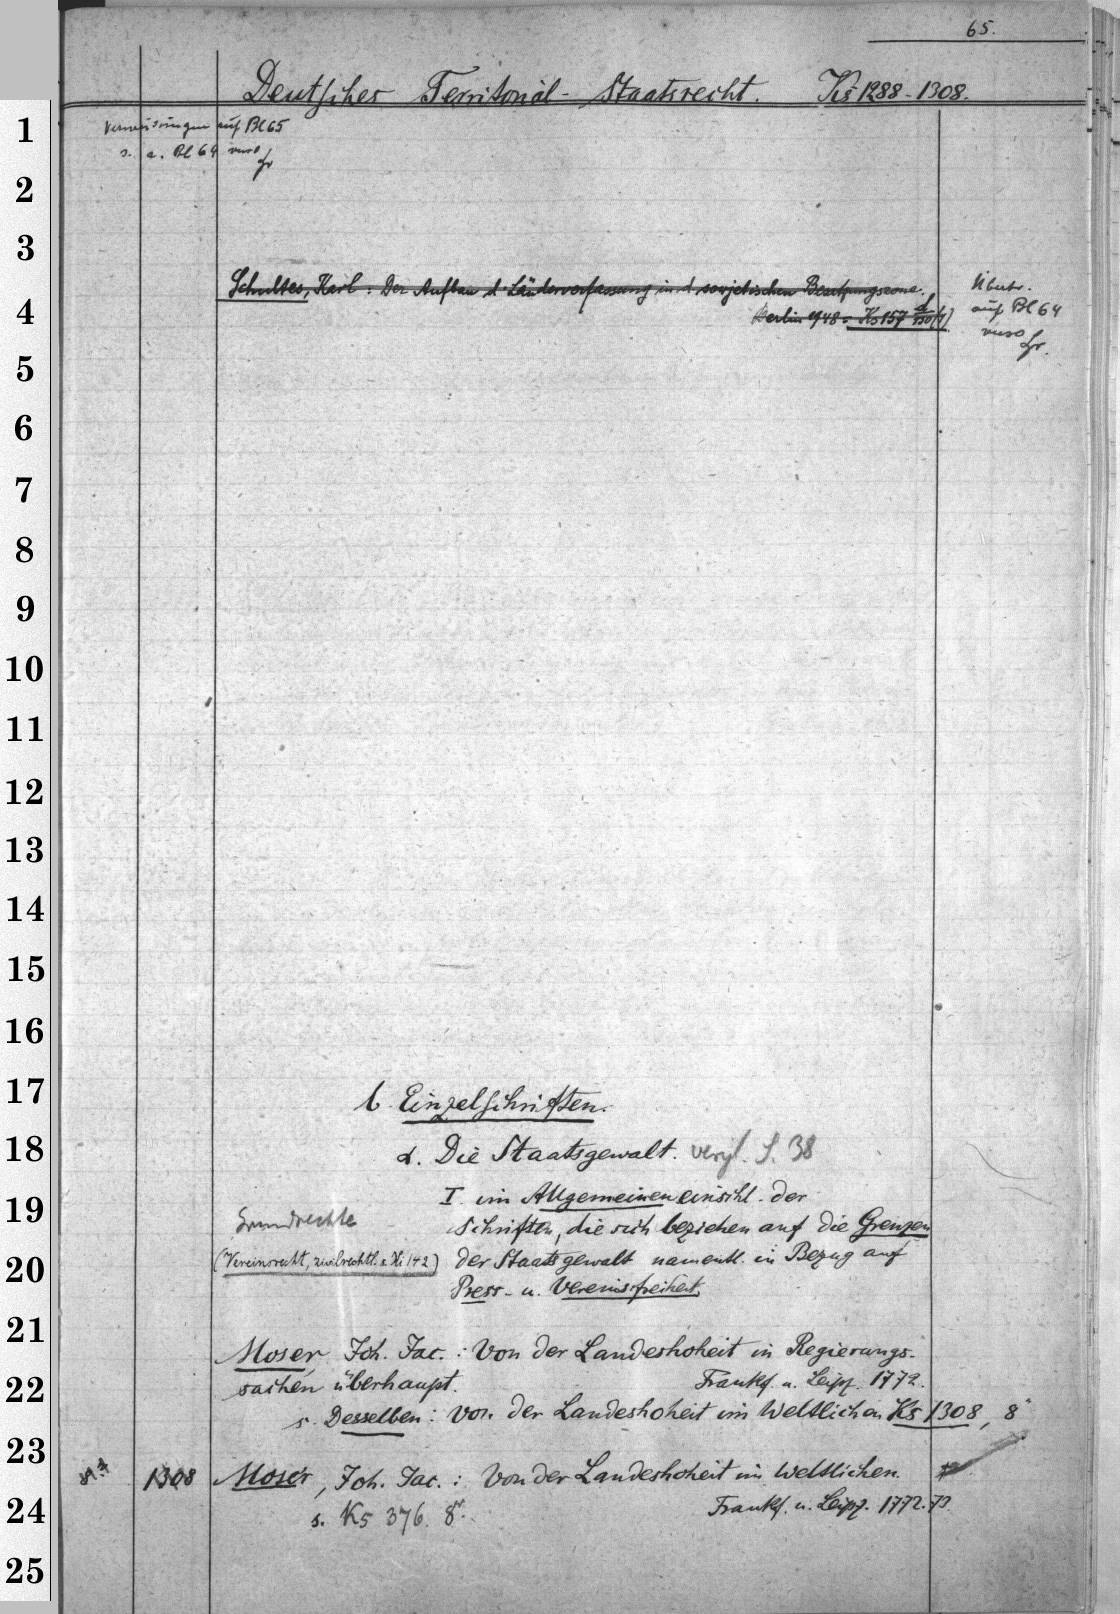 65.
Deutsches Territorial-Staatsrecht. Ks 1288-1308.
1
Verweisungen auf Bl 65
s. a. Bl 64 verso
2
3
Schultes, Karl: Der Aufbau d Länderverfassung in d sovjetischen Besatzungszone.
Übertr.
4
Berlin 1948 = Ks 157
auf Bl 64
verso
5
6
7
8
9
10
11
12
13
14
15
16
17
b. Einzelschriften.
18
α. Die Staatsgewalt. vergl. S. 38
I. im Allgemeinen einschl. der
19
Grundrechte
Schriften, die sich beziehen auf die Grenzen
(Vereinsrecht, zivilrechtl. s. Ki 142)
der Staatsgewalt namentl. in Bezug auf
20
Press- u. Vereinsfreiheit.
21
Moser, Joh. Jac.: Von der Landeshoheit in Regierungs-
22
sachen überhaupt. Frankf. u. Leipz. 1772.
s. Desselben: Von der Landeshoheit im Weltlichen Ks 1308, 8°
23
1308 Moser, Joh. Jac.: Von der Landeshoheit im Weltlichen.
24
Frankf. u. Leipz. 1772.73
s. Ks 376. 8°.
25